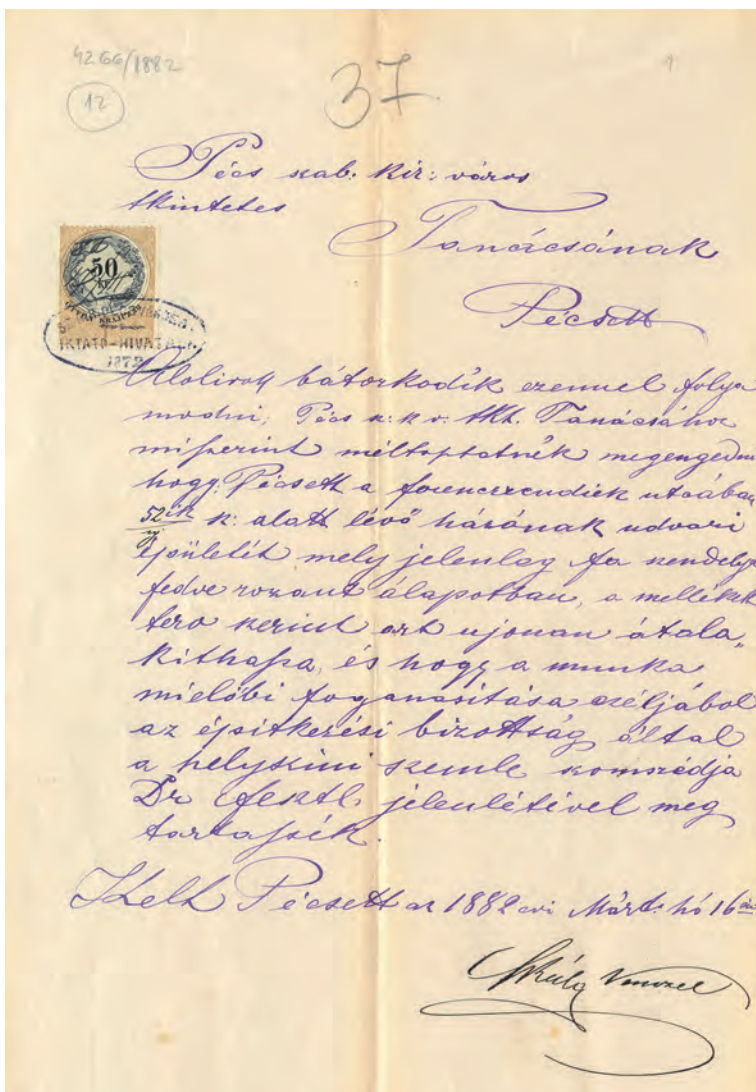 4266/1882
12
37
1
Pécs szab. kir: város
tkintetes
Tanácsának
Pécsett
50
kr
IKTATÓ-HIVATALA
1879
Alolirott bátorkodik ezennel folya
modni; Pécs sz: k: v: tkt. Tanácsához
miszerint méltóztatnék megengedni
hogy Pécsett a ferencziendiek utcában
52ik sz: alatt lévő házának udvari
épületét mely jelenlag fa sendelyel
fedve rozant álapotban, a mellékk
terv szerint azt ujonan átala„
kithassa, és hogy a munka
mielőbi foganasitása czéljából
az épitkezési bizottság által
a helyszini szemle szomszédja
Dr jelenlétével meg
tartassék.
Kelt Pécsett az 1882 évi Márt. hó 16án
Skála Venczel